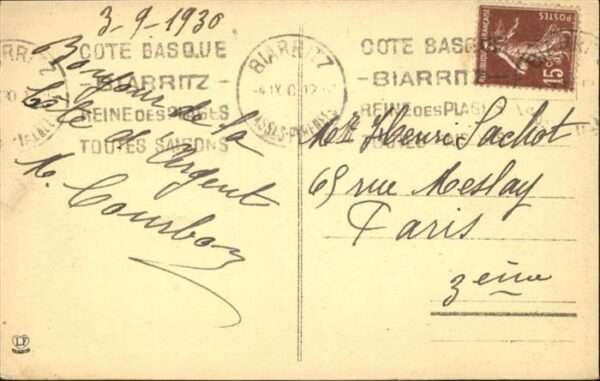 3-9-1930
Bonjour de la
Côte d'Argent
M. Courbon
COTE BASQUE
BIARRITZ
REINE DES PLAGES
TOUTES SAISONS
BIARRITZ
BASSES-PYRENEES
COTE BASQUE
BIARRITZ
REINE DES PLAGES
POSTES
15c
Henri Sachot
69 rue Meslay
Paris
3ème
LF